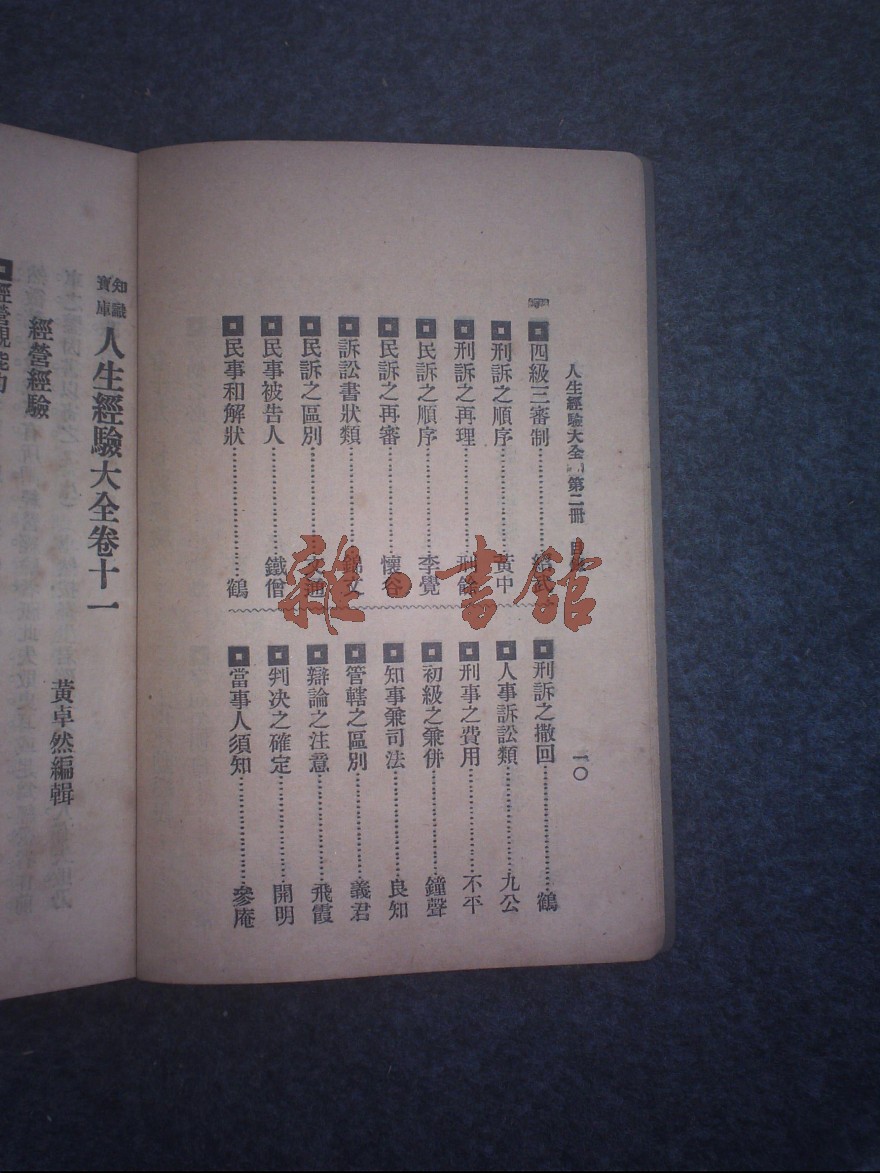 人生經驗大全 第二冊 目
一〇
四級三審制
刑訴之順序 黃中
刑訴之再理 刑餘
民訴之順序 李覺
民訴之再審 懷谷
訴訟書狀類
民訴之區別
民事被告人 鐵僧
民事和解狀 鶴
刑訴之撤回 鶴
人事訴訟類 九公
刑事之費用 不平
初級之兼併 鐘聲
知事兼司法 良知
管轄之區別 義君
辯論之注意 飛霞
判决之確定 開明
當事人須知 參庵
知識寶庫 人生經驗大全卷十一
黃卓然編輯
經營經驗
雜·書館